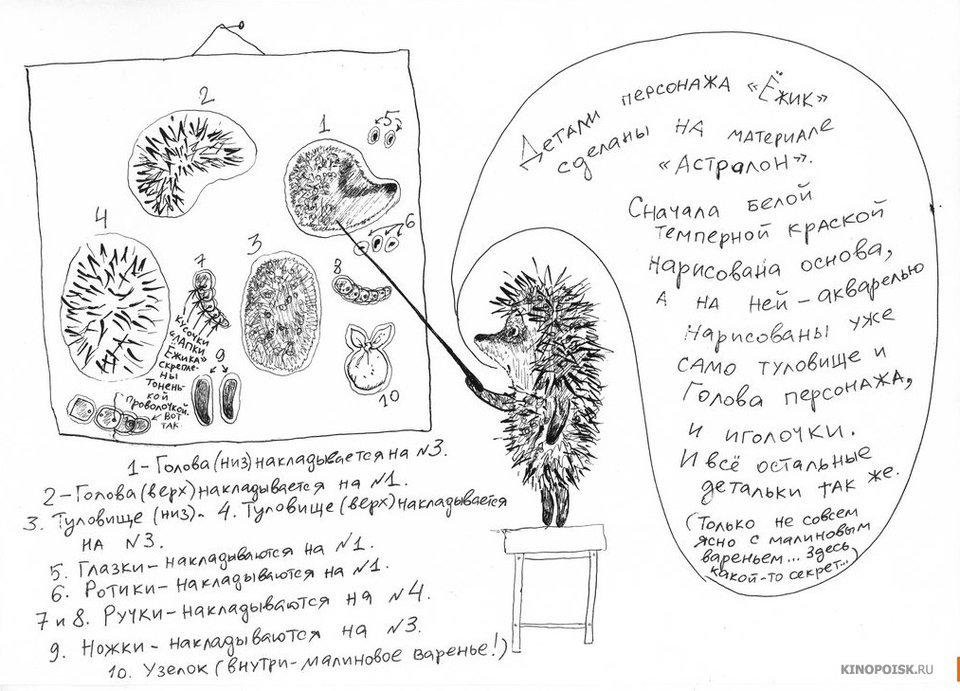 2
1
5
6
4
3
7
8
Кусочки
«лапки
Ёжика»
скрепле-
ны
тонень-
кой
проволочкой.
← вот
так.
9
10
1 – Голова (низ) накладывается на №3.
2 – Голова (верх) накладывается на №1.
3. Туловище (низ). 4. Туловище (верх) накладывается
на №3.
5. Глазки – накладываются на №1.
6. Ротики – накладываются на №1.
7 и 8. Ручки – накладываются на №4.
9. Ножки – накладываются на №3.
10. Узелок (внутри – малиновое варенье!)
Детали персонажа «Ёжик»
сделаны на материале
«Астралон».
Сначала белой
темперной краской
нарисована основа,
а на ней – акварелью
нарисованы уже
само туловище и
Голова персонажа,
и иголочки.
И всё остальные
детальки так же.
(Только не совсем
ясно с малиновым
вареньем... Здесь
какой-то секрет...)
KINOPOISK.RU